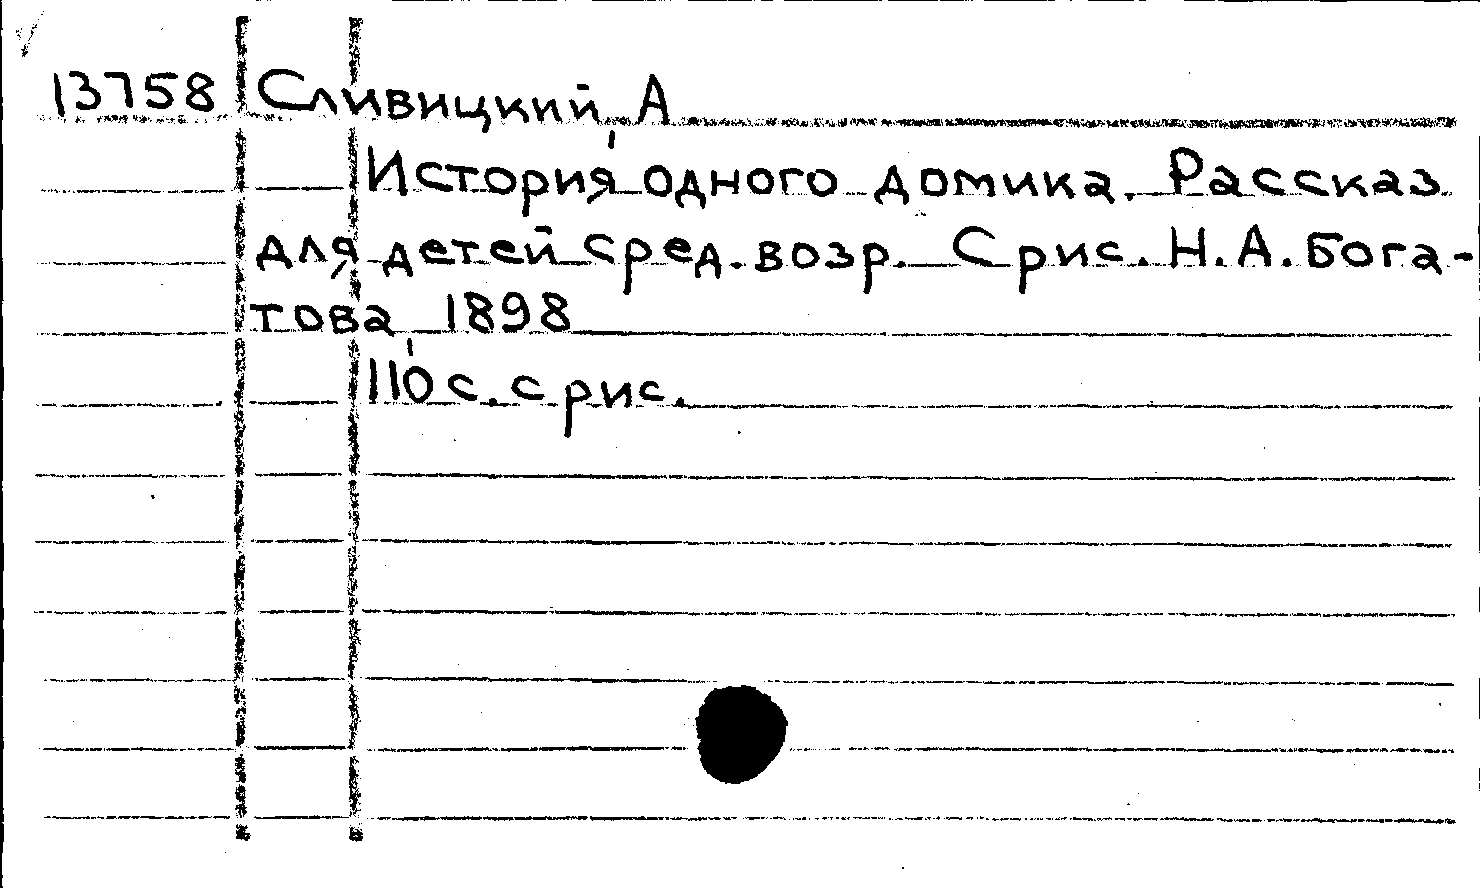 13758 Сливицкий, А
История одного домика. Рассказ
для детей сред. возр. С рис. Н.А. Бога-
това, 1898
110 с. с рис.